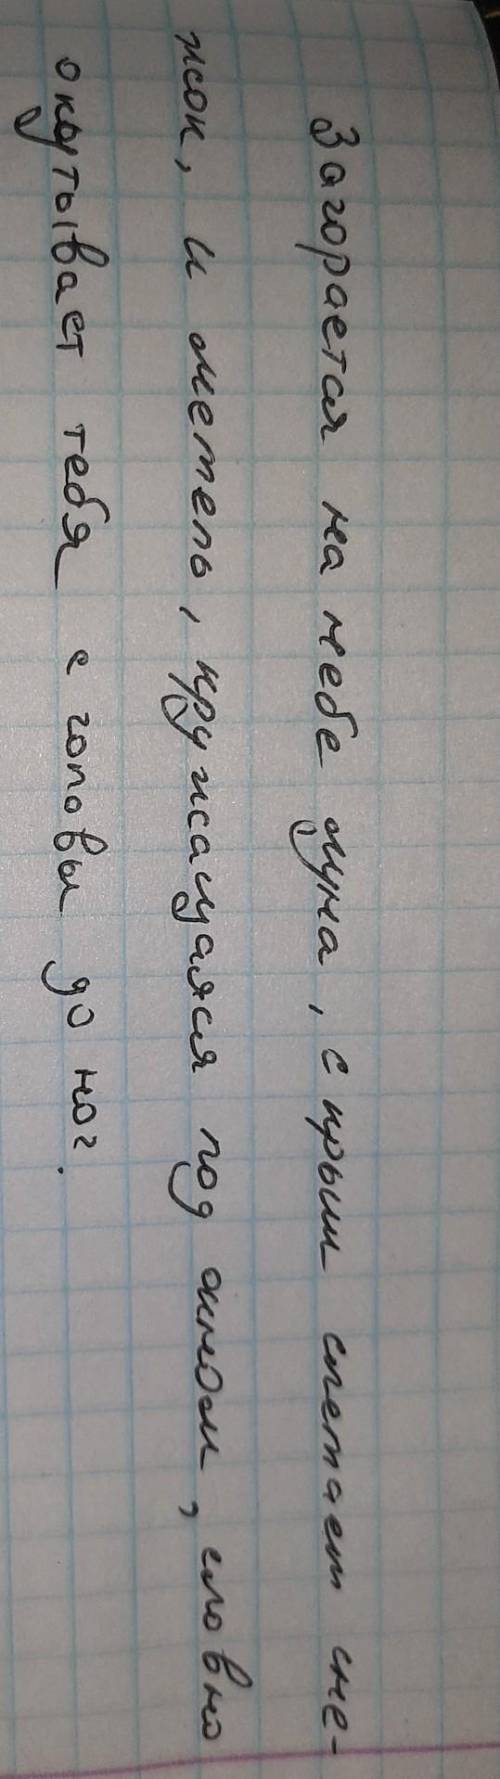 Загорается на небе луна, с крыш слетает сне-
жок, и метель, кружащаяся под окном, словно
окутывает тебя с головы до ног.